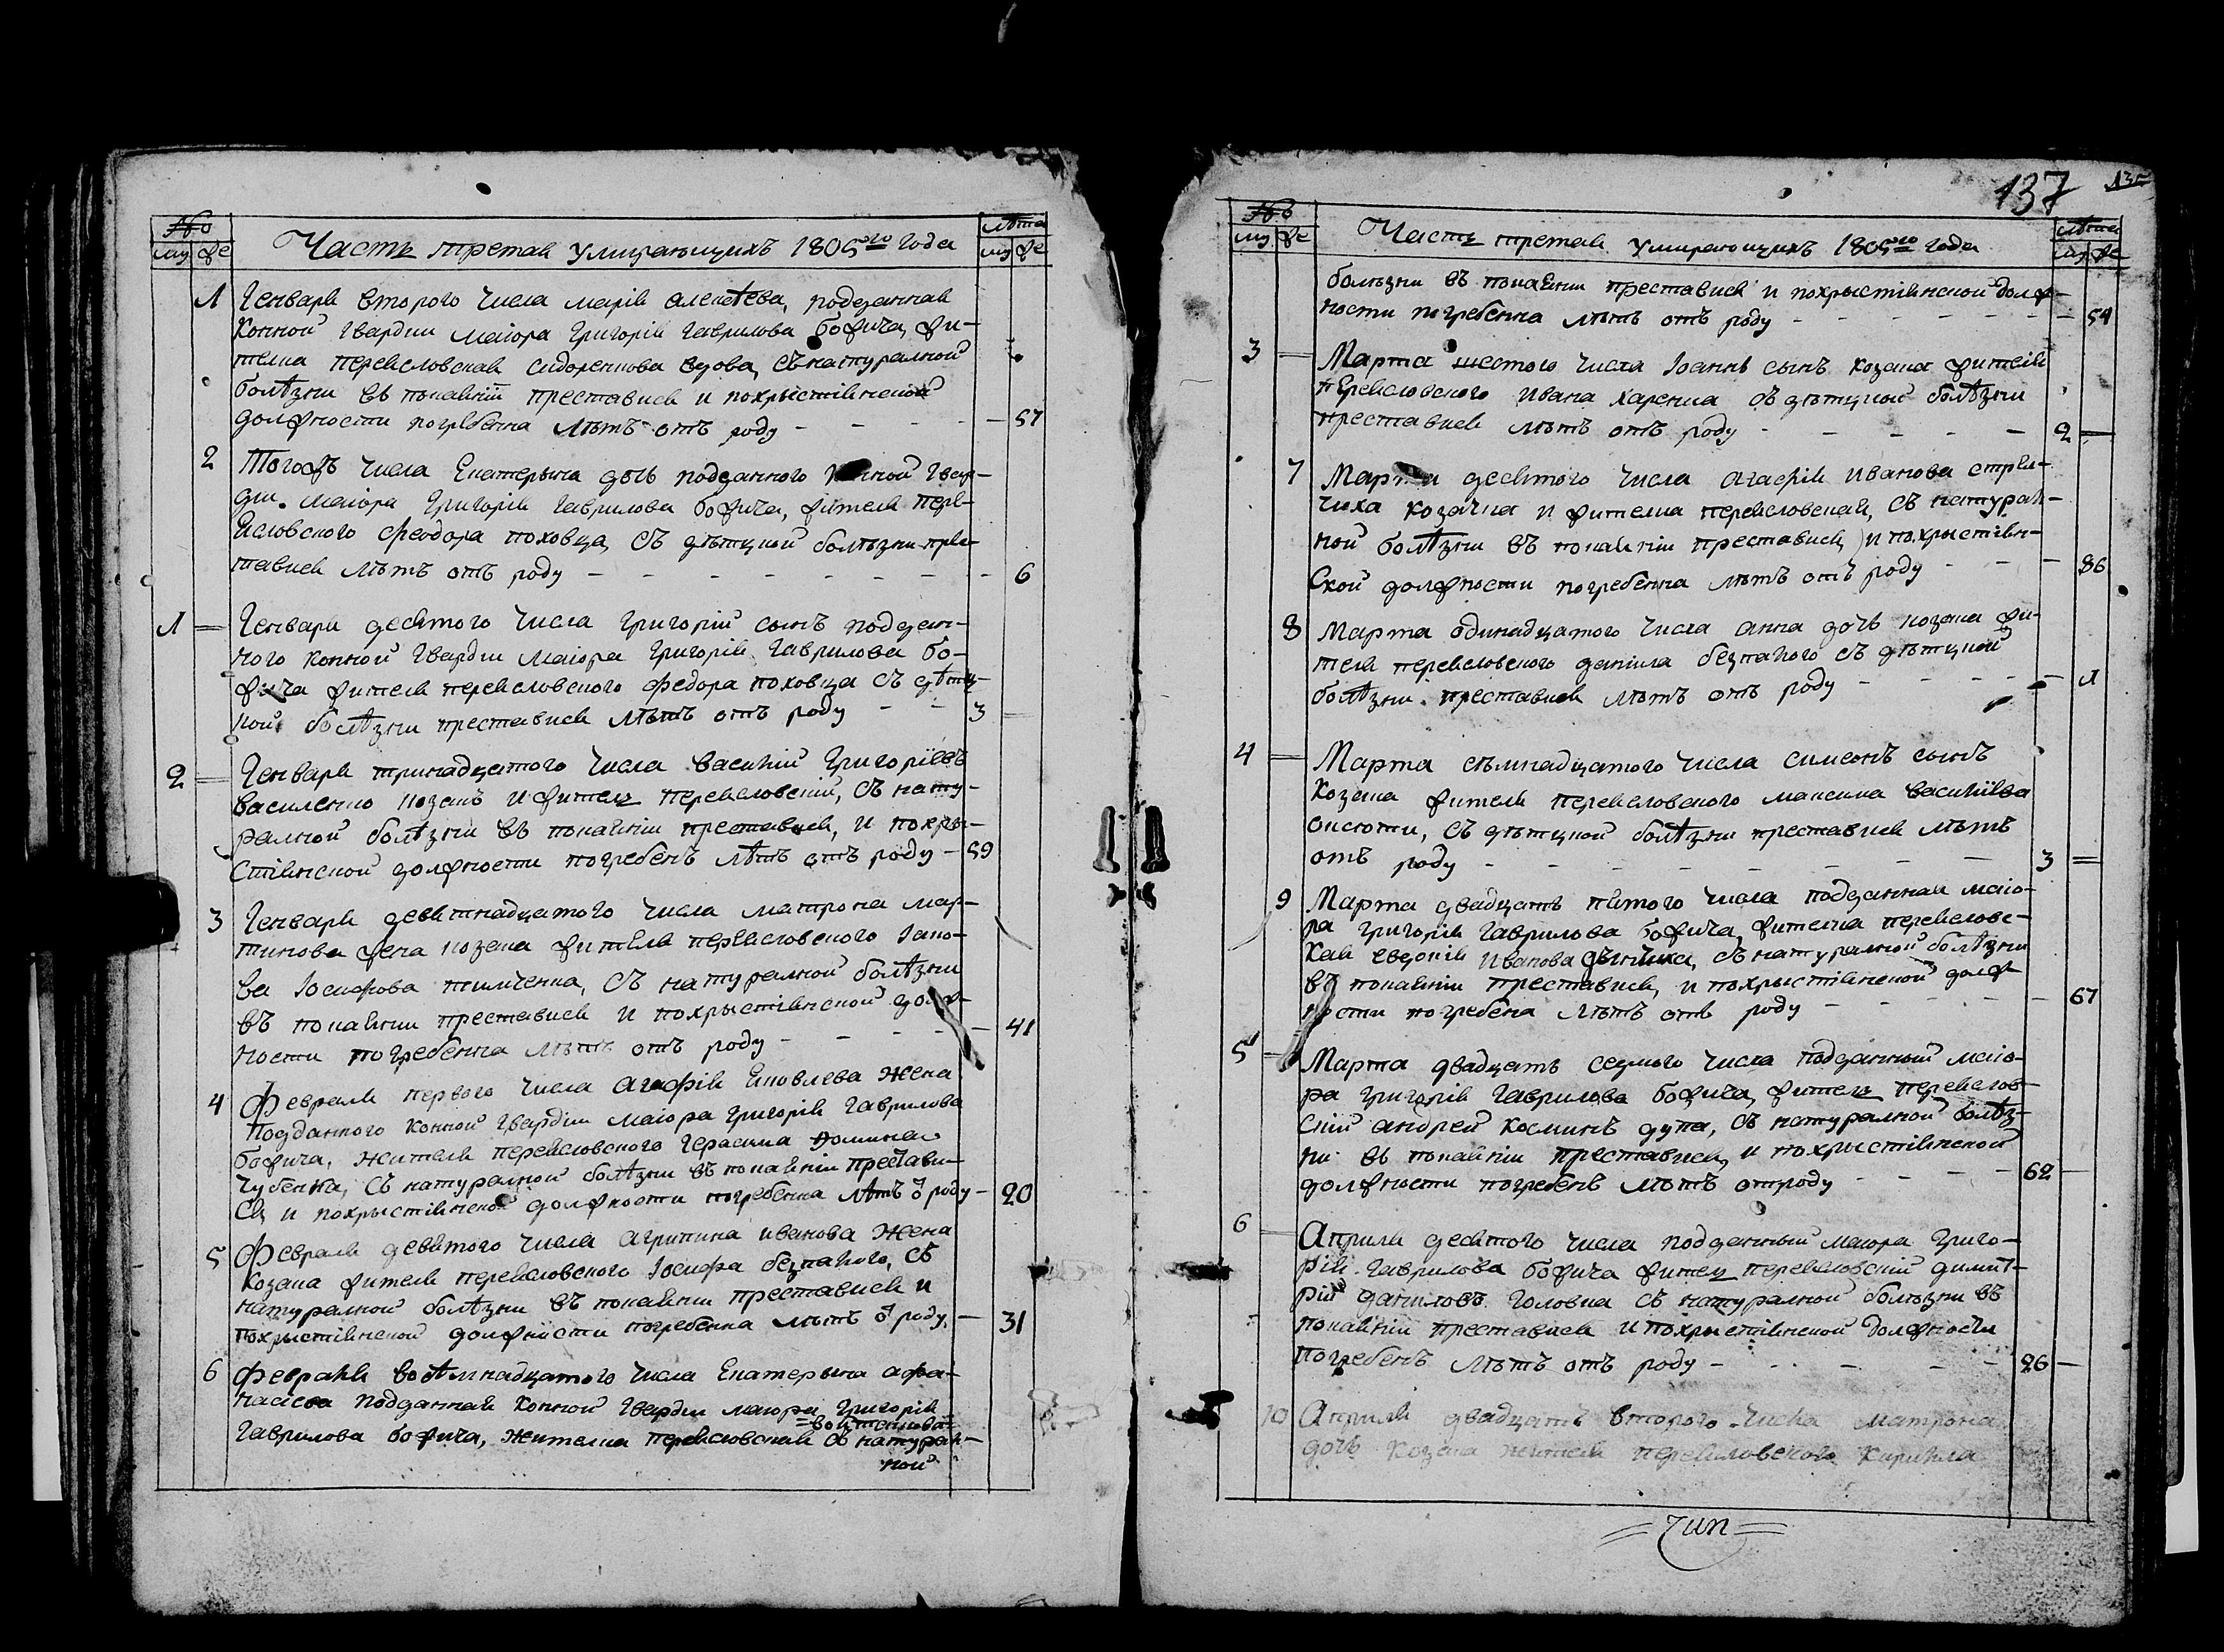 №
му же
Часть третая умирающихъ 1805ого года
лѣта
му же
1 Генваря второго числа марія алексѣева, подданная
конной гвардии маіора григорія гаврилова божича, жи-
телка переясловская сидоренкова вдова, съ натуралной
болѣзни въ покаяніи преставися и похрыстіянской
должности погребенна лѣтъ отъ роду - - - - 57
2 Тогожъ числа Екатерына дочь подданного конной гвар-
дии маіора григорія гаврилова божича, жителя пере-
ясловского феодора поховца, съ дѣтцкой болѣзни прес-
тавися лѣтъ отъ роду - - - - - - - - 6
1 Генваря десятого числа григорій сынъ поддан-
ного конной гвардіи маіора григорія гаврилова бо-
жича жителя переясловского федора поховца съ дѣтц-
кой болѣзни преставися лѣтъ отъ роду - - 3
2 Генваря тринадцатого числа василій григоріевъ
василенко козакъ и житель переясловскій, съ нату-
ралной болѣзни въ покаяніи преставися, и похры-
стіянской должности погребенъ лѣтъ отъ роду - 59
3 Генваря девятнадцатого числа матрона мар-
тинова жена козака жителя переясловского Іако-
ва Іосифова съ натуралной болѣзни
въ покаянии преставися и похрыстіянской долж-
ности погребенна лѣтъ отъ роду - - - - 41
4 Февраля первого числа агафія Яковлева жена
подданного конной гвардіи маіора григорія гаврилова
божича, жителя переясловского герасима
съ натуралной болѣзни въ покаяніи престави-
ся, и похрыстіянской должности погребенна лѣтъ ѿ роду - 20
5 Февраля девятого числа агрипина иванова жена
козака жителя переясловского Іосифа безпалого, съ
натуралной болѣзни въ покаянии преставися и
похрыстіянской должности погребенна лѣтъ ѿ роду. - 31
6 февраля восѣмнадцатого числа Екатерына афа-
насіева подданная конной гвардіи маіора григорія
гаврилова божича, жителка переясловская съ натурал-
ной
137
№
му же
Часть третая умирающихъ 1805го года
лѣта
му же
болѣзни въ покаянии преставися и похрыстіянской долж-
ности погребенна лѣтъ отъ роду - - - - - - - 54
3 Марта шестого числа Іоаннъ сынъ козака жителя
переясловского ивана харенка съ дѣтцкой болѣзни
преставися лѣтъ отъ роду - - - - - 2
7 Марта десятого числа агафія иванова стрел-
чиха козачка и жителка переясловская, съ натурал-
ной болѣзни въ покаяніи преставися, и похрыстіян-
ской должности погребенна лѣтъ отъ роду - - - 86
8 Марта одинадцатого числа анна дочь козака жи-
теля переясловского даніила безпалого съ дѣтцкой
болѣзни преставися лѣтъ отъ роду - - - - - 1
4 Марта сѣмнадцатого числа симеонъ сынъ
козака жителя переясловского максима василіева
съ дѣтцкой болѣзни преставися лѣтъ
отъ роду - - - - - - - 3
9 Марта двадцать пятого числа подданная маіо-
ра григорія гаврилова божича, жителка переясловс-
кая евдокія иванова съ натуралной болѣзни
въ покаяніи преставися, и похрыстіянской долж-
ности погребена лѣтъ отъ роду - - - - - - 67
5 Марта двадцать седмого числа подданный маіо-
ра григорія гаврилова божича, житель переяслов-
скій андрей косминъ дупа, съ натуралной болѣз-
ни въ покаяніи преставися, и похрыстіянской
должности погребенъ лѣтъ отроду - - - - 62
6 Априля десятого числа подданный маіора григо-
рія гаврилова божича житель переясловскій димит-
рій даниловъ головка съ натуралной болѣзни въ
покаяніи преставися и похрыстіянской должности
погребенъ лѣтъ отъ роду - - - - - - 26
10 Априля двадцать второго числа матрона
дочь козака жителя переясловского кирилла